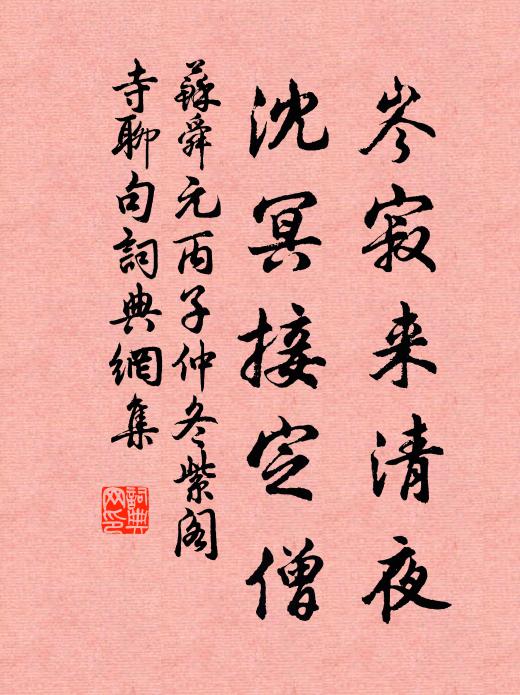 岑寂来清夜
沈冥接定僧
蘇舜元丙子仲冬紫阁
寺聊句詞典網集
詞典
网印